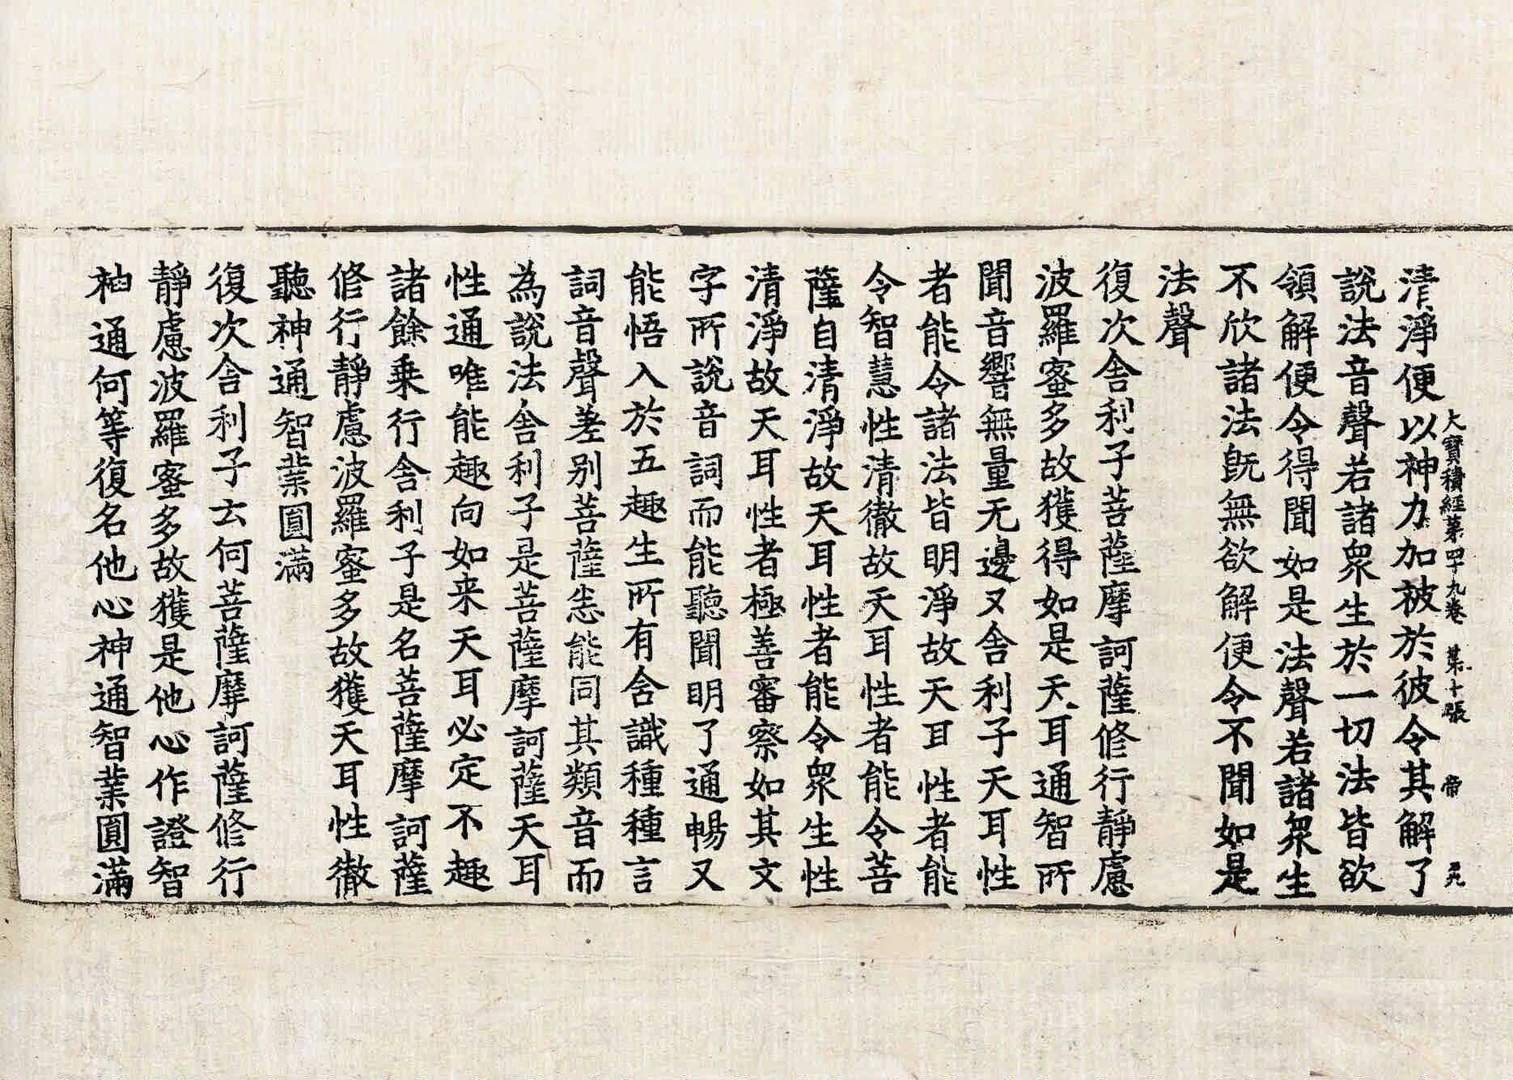 大寶積經第四十九卷 第十張 帝
清淨便以神力加被於彼令其解了
說法音聲若諸眾生於一切法皆欲
領解便令得聞如是法聲若諸眾生
不欣諸法旣無欲解便令不聞如是
法聲
復次舍利子菩薩摩訶薩修行靜慮
波羅蜜多故獲得如是天耳通智所
聞音響無量无邊又舍利子天耳性
者能令諸法皆明淨故天耳性者能
令智慧性清徹故天耳性者能令菩
薩自清淨故天耳性者能令眾生性
清淨故天耳性者極善審察如其文
字所說音詞而能聽聞明了通暢又
能悟入於五趣生所有含識種種言
詞音聲差别菩薩悉能同其類音而
為說法舍利子是菩薩摩訶薩天耳
性通唯能趣向如来天耳必定不趣
諸餘乗行舍利子是名菩薩摩訶薩
修行靜慮波羅蜜多故獲天耳性徹
聽神通智業圓滿
復次舍利子云何菩薩摩訶薩修行
靜慮波羅蜜多故獲是他心作證智
神通何等復名他心神通智業圓滿